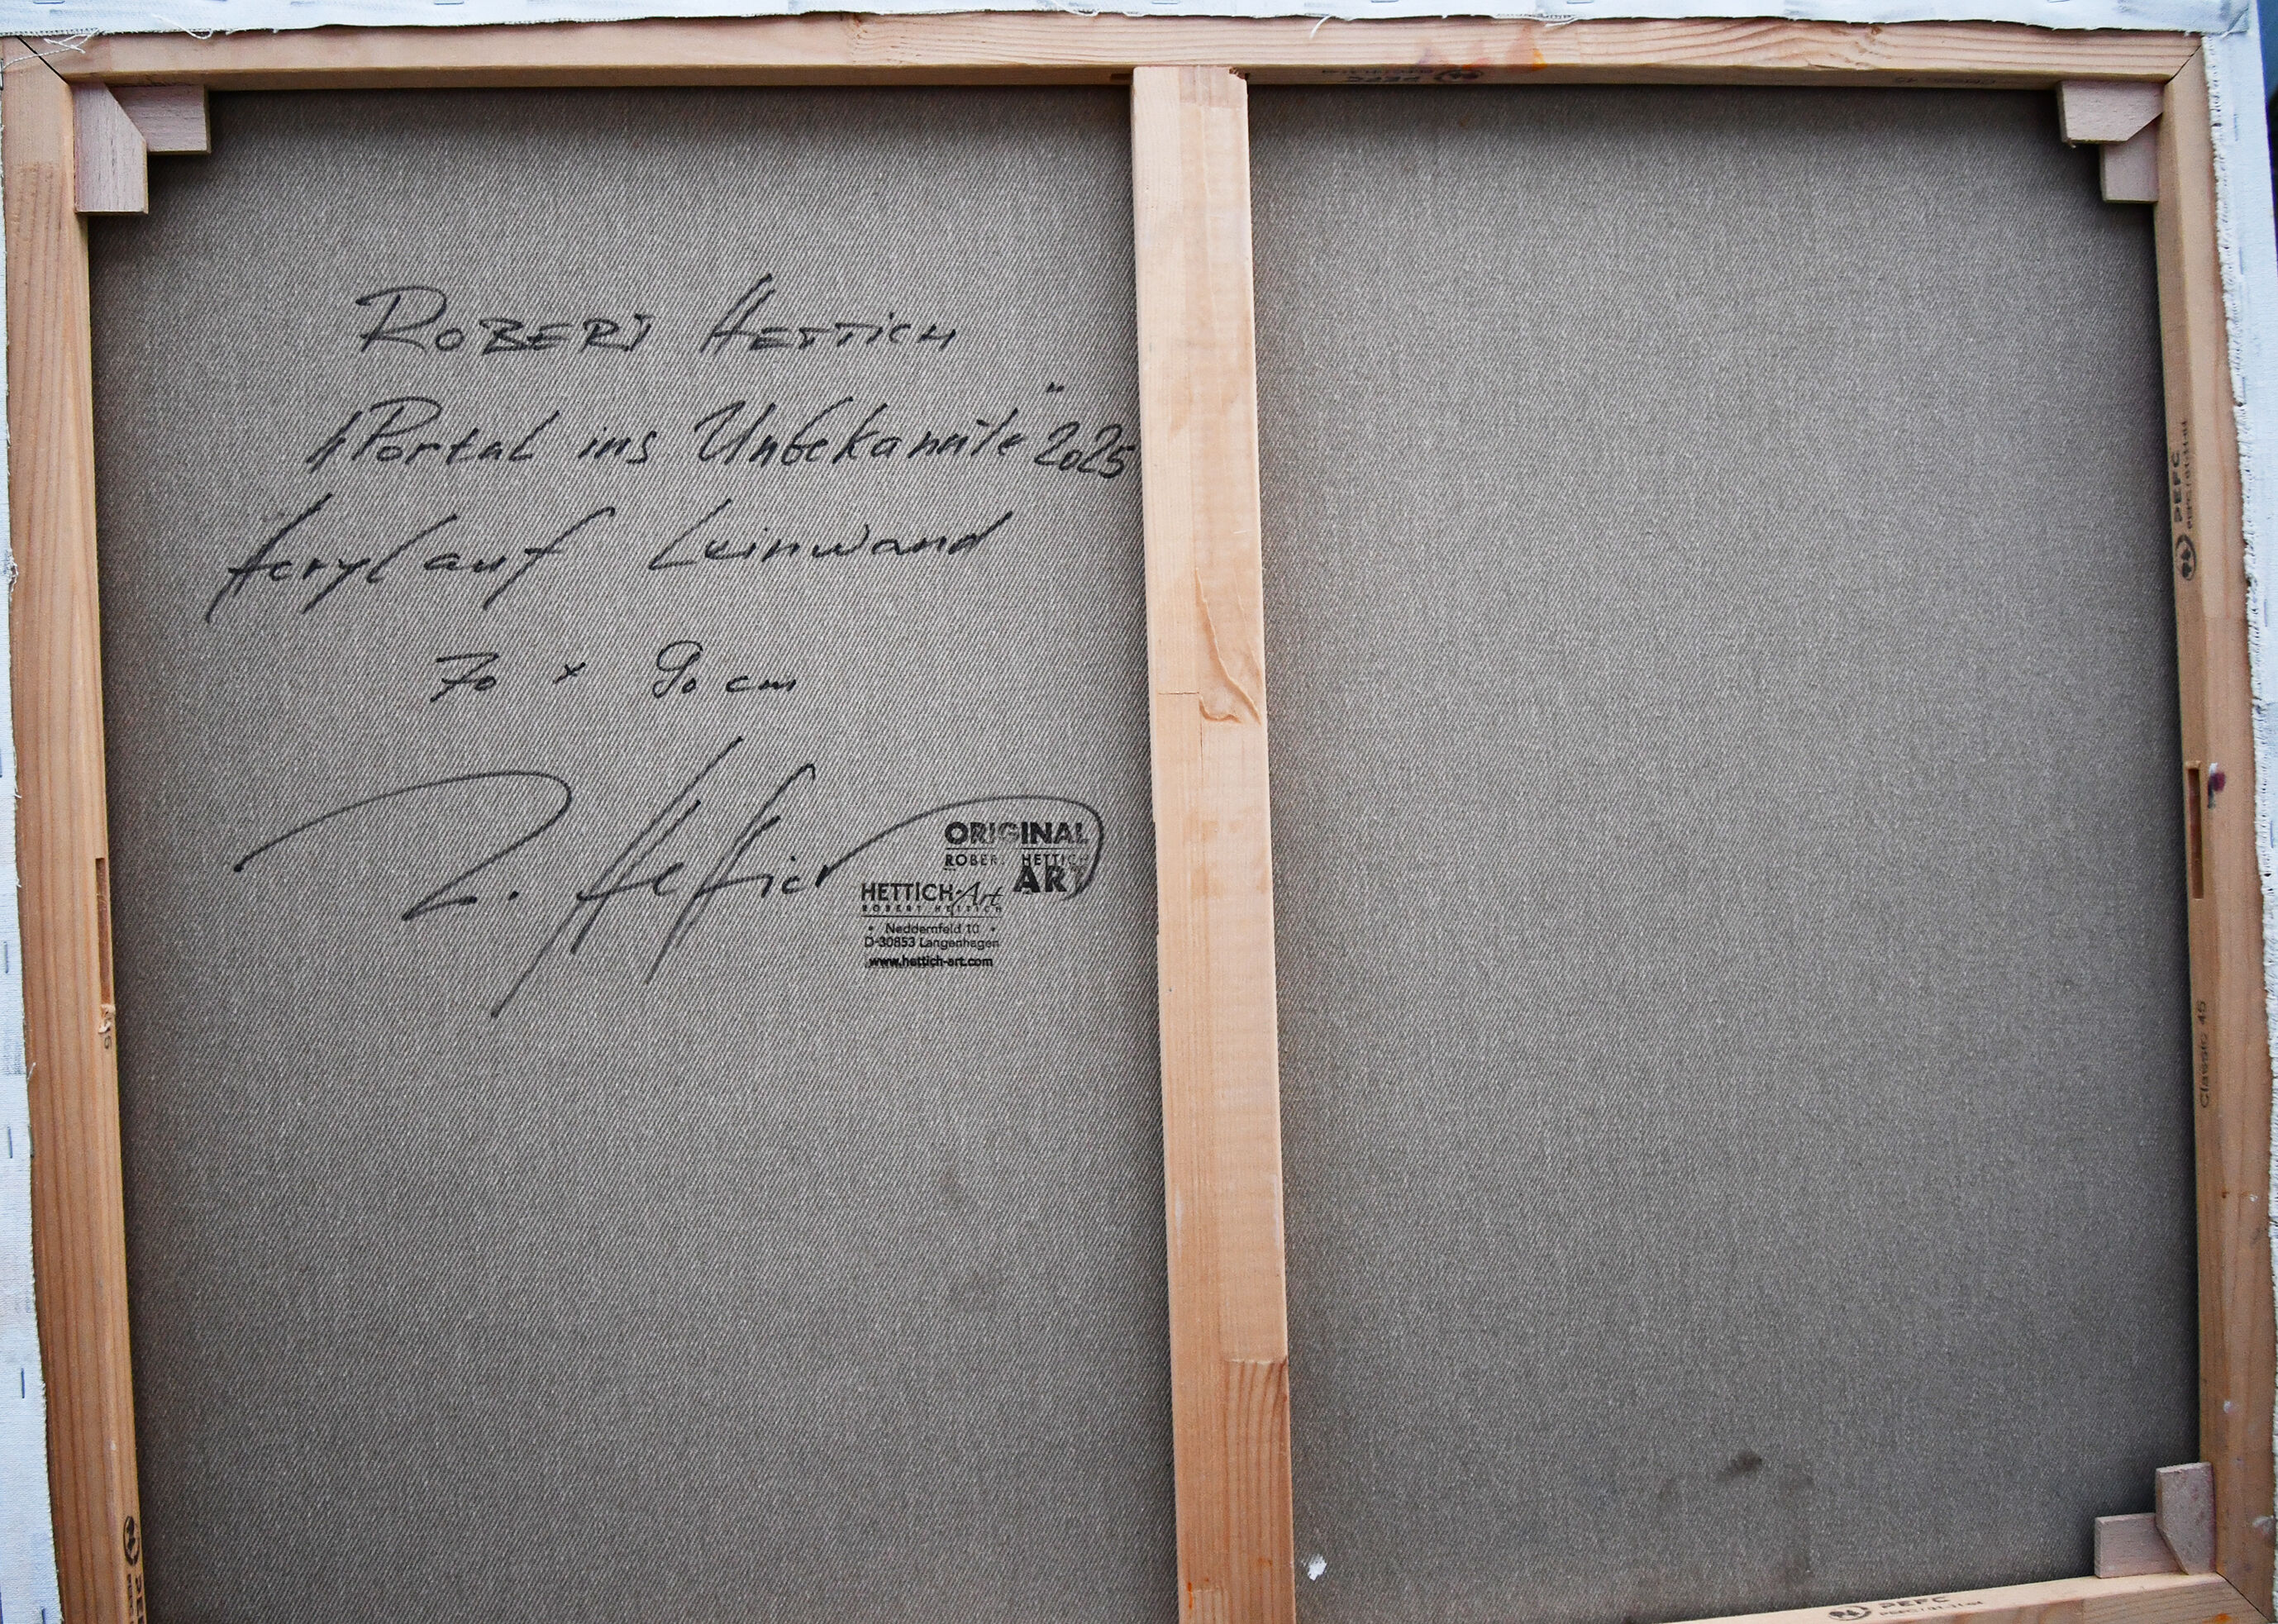 ROBERT HETTICH
„Portal ins Unbekannte" 2025
Acryl auf Leinwand
70 x 90 cm
R. Hettich
ORIGINAL
ROBERT HETTICH
ART
HETTICH-Art
ROBERT HETTICH
• Neddernfeld 10 •
D-30853 Langenhagen
www.hettich-art.com
PEFC
Classic 45
PEFC